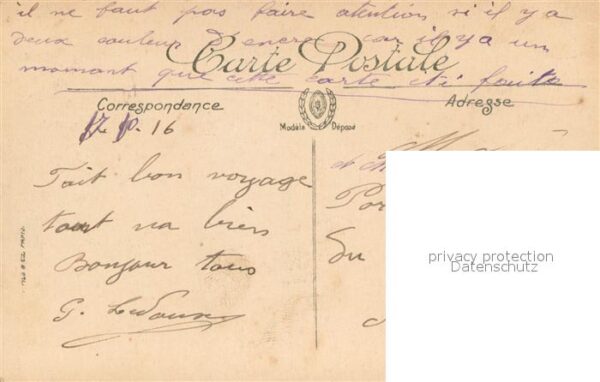 il ne faut pas faire atention si il y a
deux couleur d'encre car il y a un
Carte Postale
momant que cette carte est faite
Correspondance
Adresse
Modèle Déposé
17. 10. 16
Fait bon voyage
tout va bien
Bonjour tous
G.
M
et M
Por
Su
privacy protection
Datenschutz